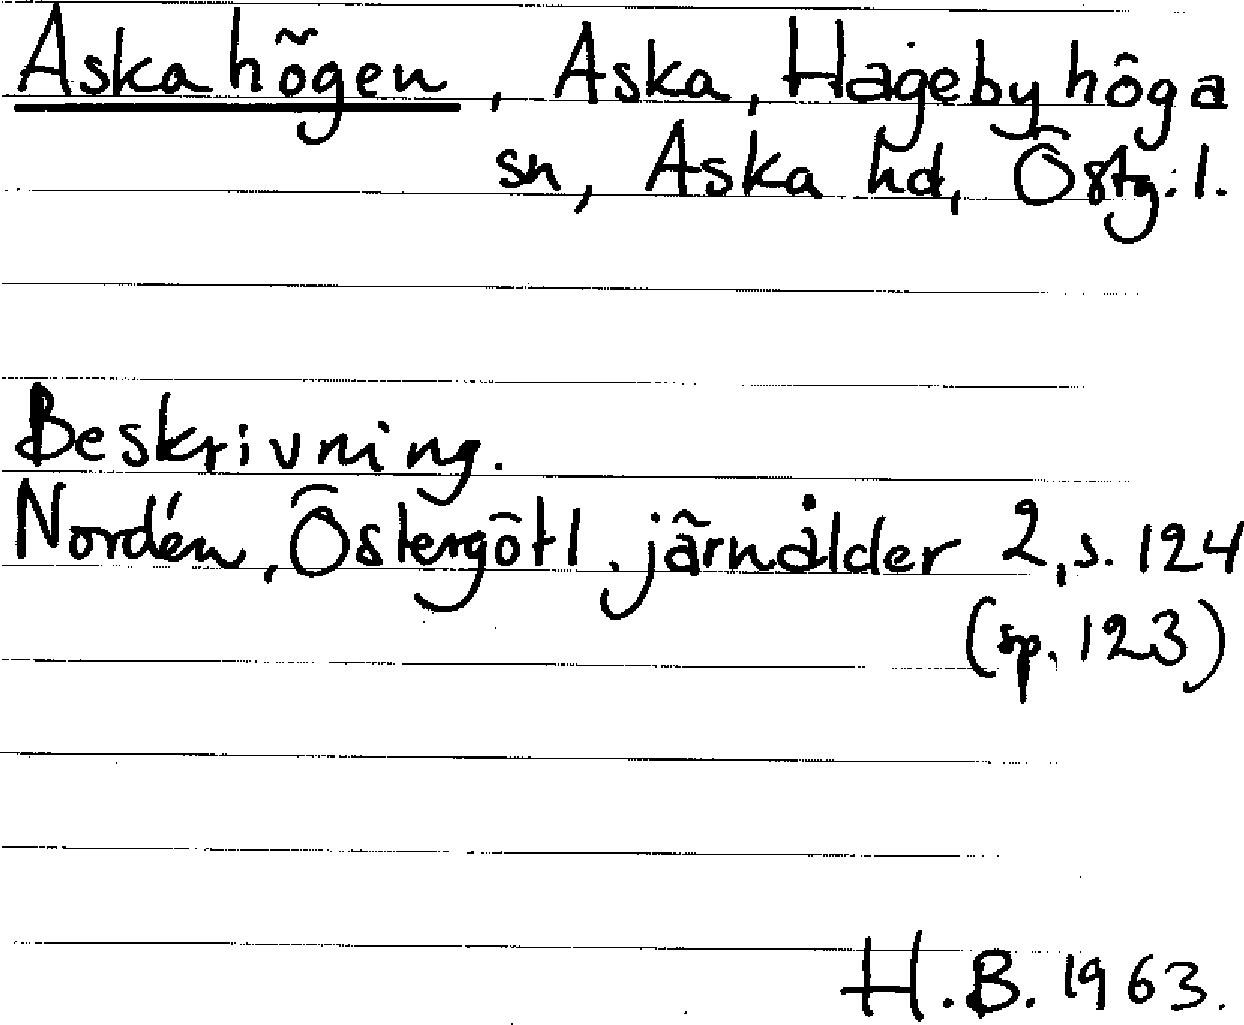 Askahögen, Aska, Hagebyhöga
sn, Aska hd, Östg:l.
Beskrivning.
Nordén, Östergötl. järnålder 2, s. 124
(sp. 123)
H.B. 1963.